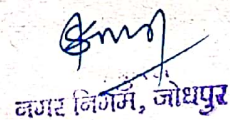 नगर निगम, जोधपुर